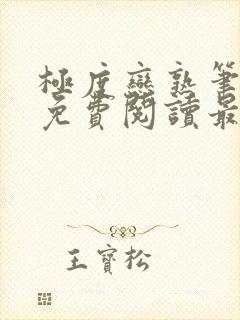 極度戀熟筆
免費閱讀最
王寶松